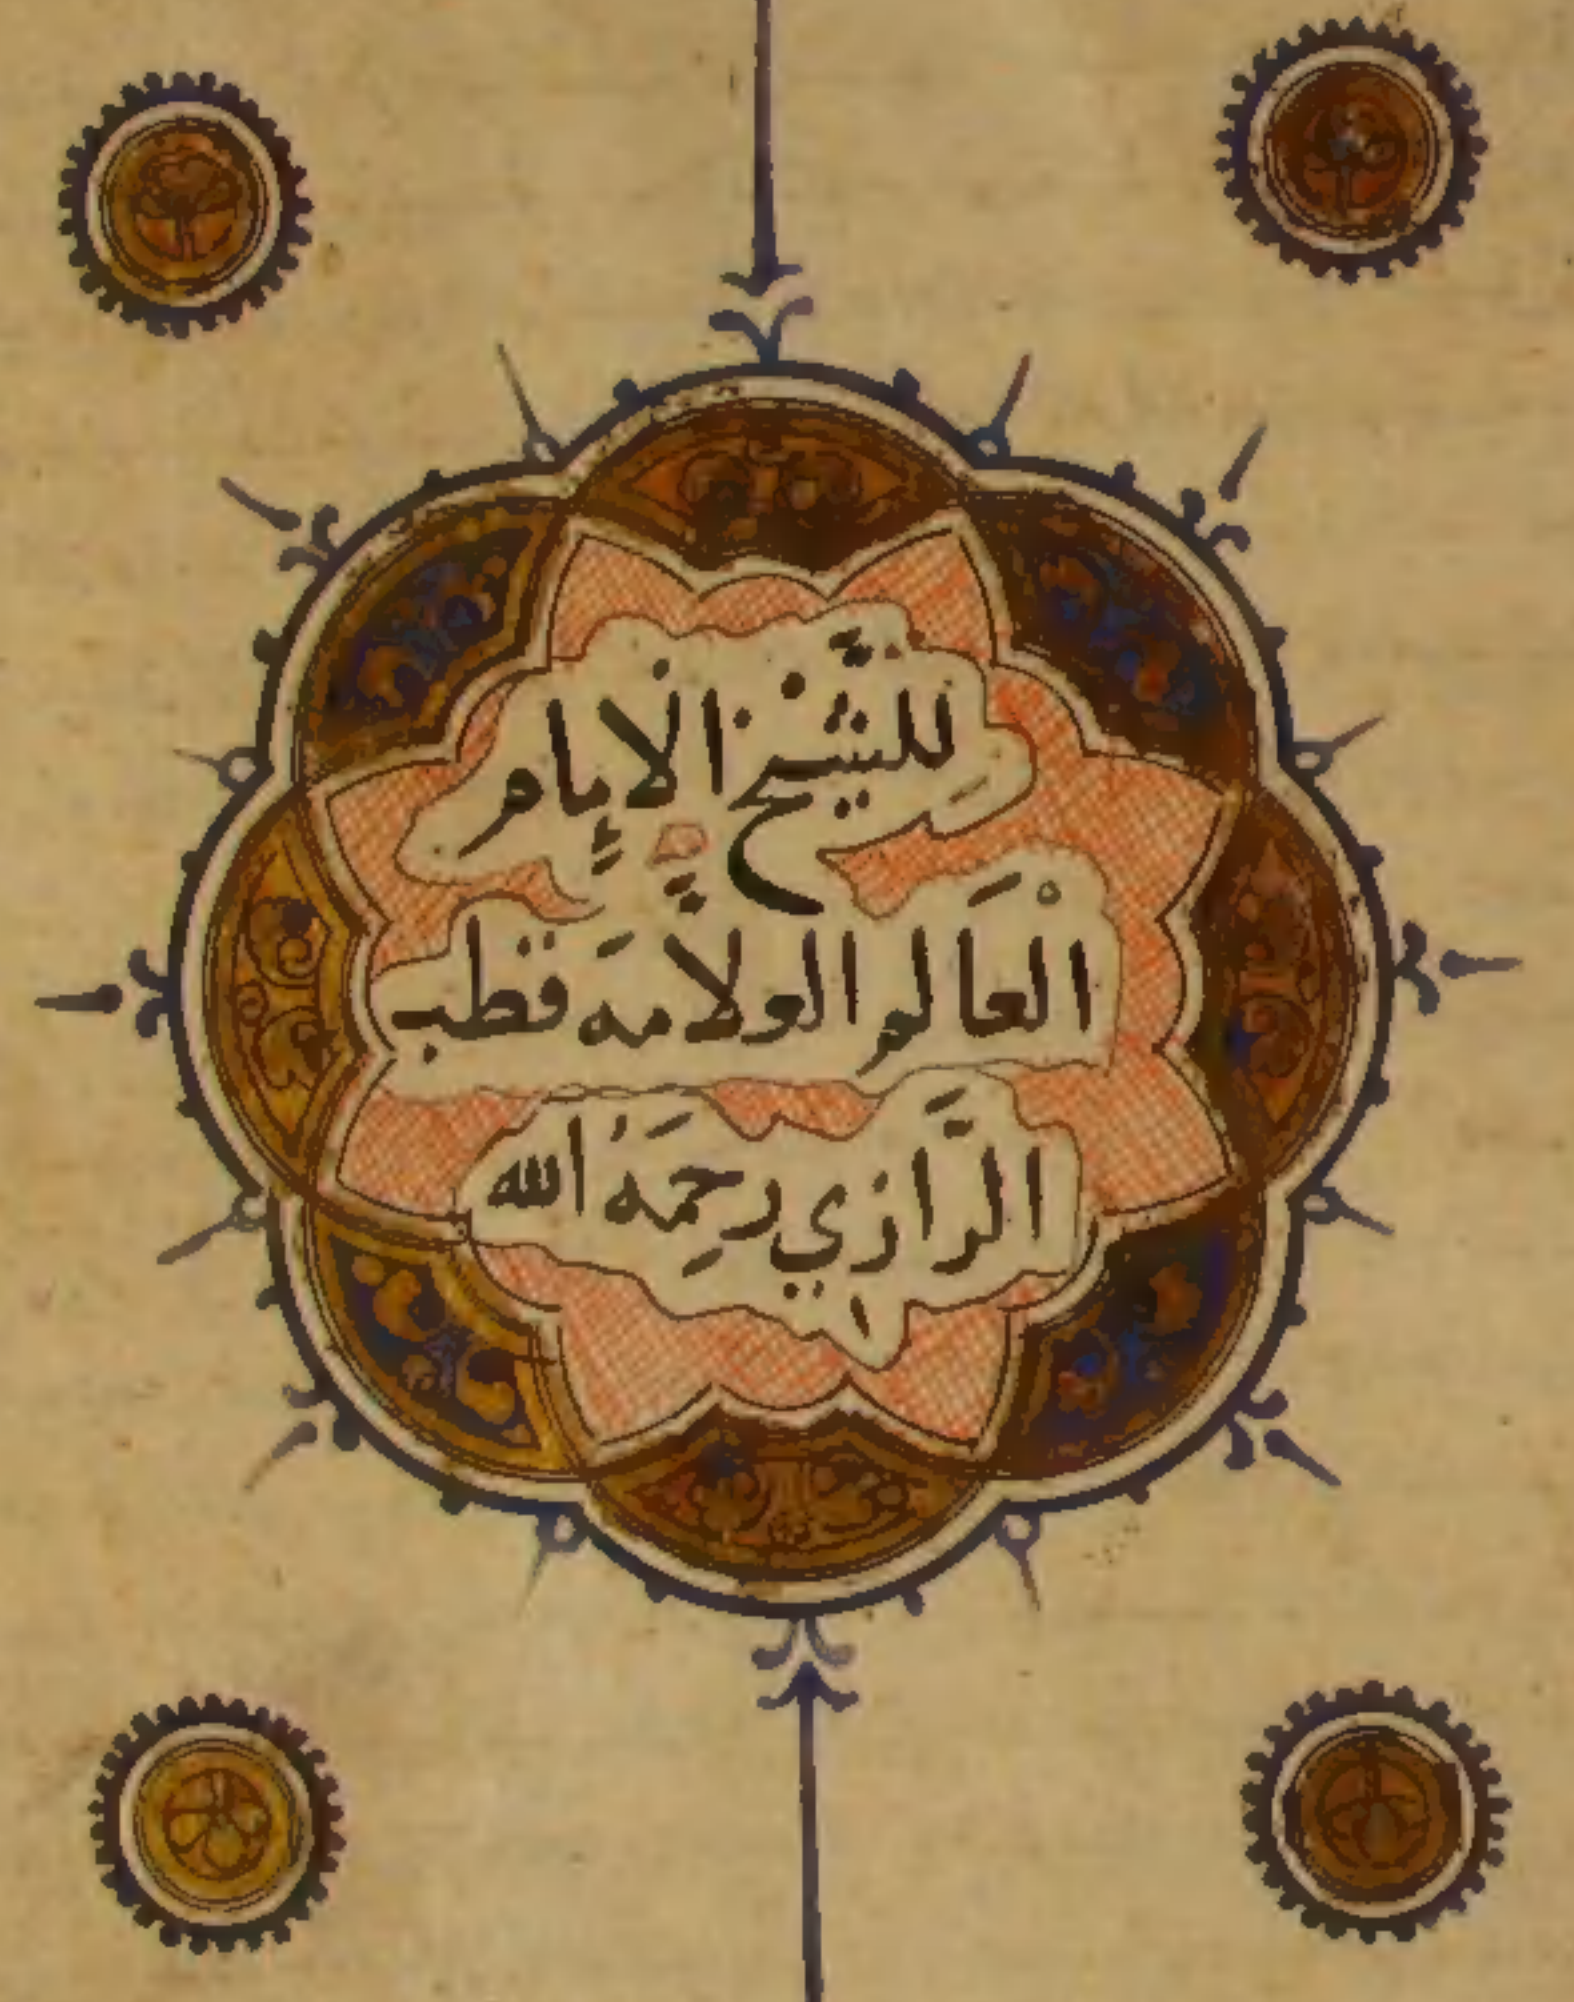 لِلشَّيْخ الاِمام
الْعَالم العلاّمَه قطب
الرَّازي رحِمَهُ الله